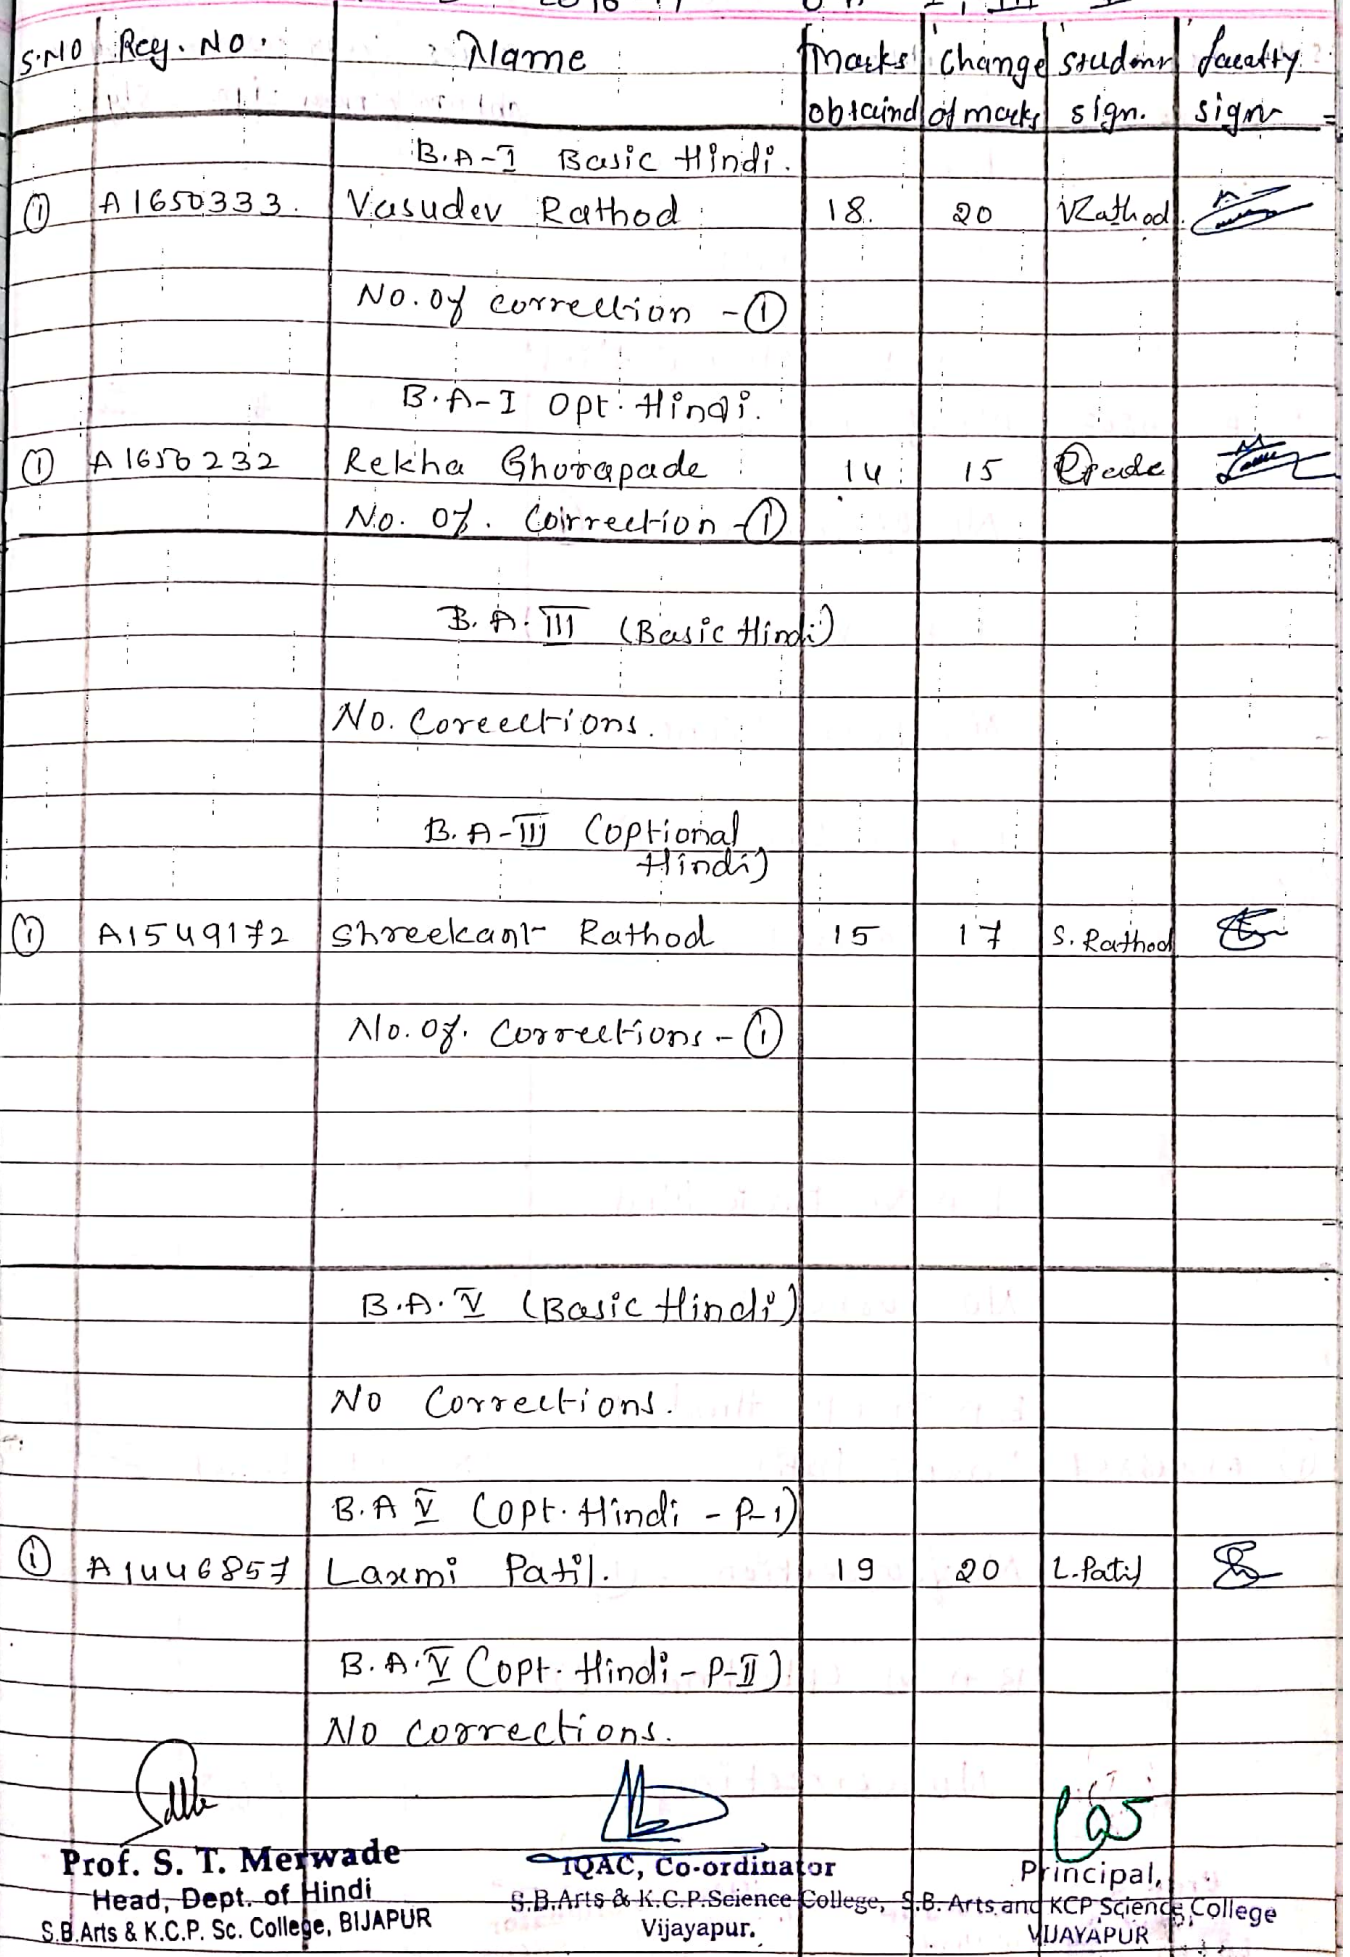 S.NO Reg. No. Name Marks obtaind Change of marks Student sign. faculty sign
B.A-I Basic Hindi.
① A1650333. Vasudev Rathod 18. 20 VRathod.
No. of correction - ①
B.A-I Opt. Hindi.
① A1650232 Rekha Ghorapade 14 15
No. of. Correction - ①
B.A. III (Basic Hindi)
No. Coreections.
B.A-III (Optional
Hindi)
① A1549172 Shreekant Rathod 15 17 S. Rathod
No. of. Corrections - ①
B.A. V (Basic Hindi)
No Corrections.
B.A V (Opt. Hindi - P-1)
① A1446857 Laxmi Patil. 19 20 L.Patil
B.A. V (Opt. Hindi - P-II)
No corrections.
Prof. S. T. Merwade
Head, Dept. of Hindi
S.B.Arts & K.C.P. Sc. College, BIJAPUR
IQAC, Co-ordinator
S.B.Arts & K.C.P.Science College,
Vijayapur.
Principal,
S.B. Arts and KCP Science College
VIJAYAPUR